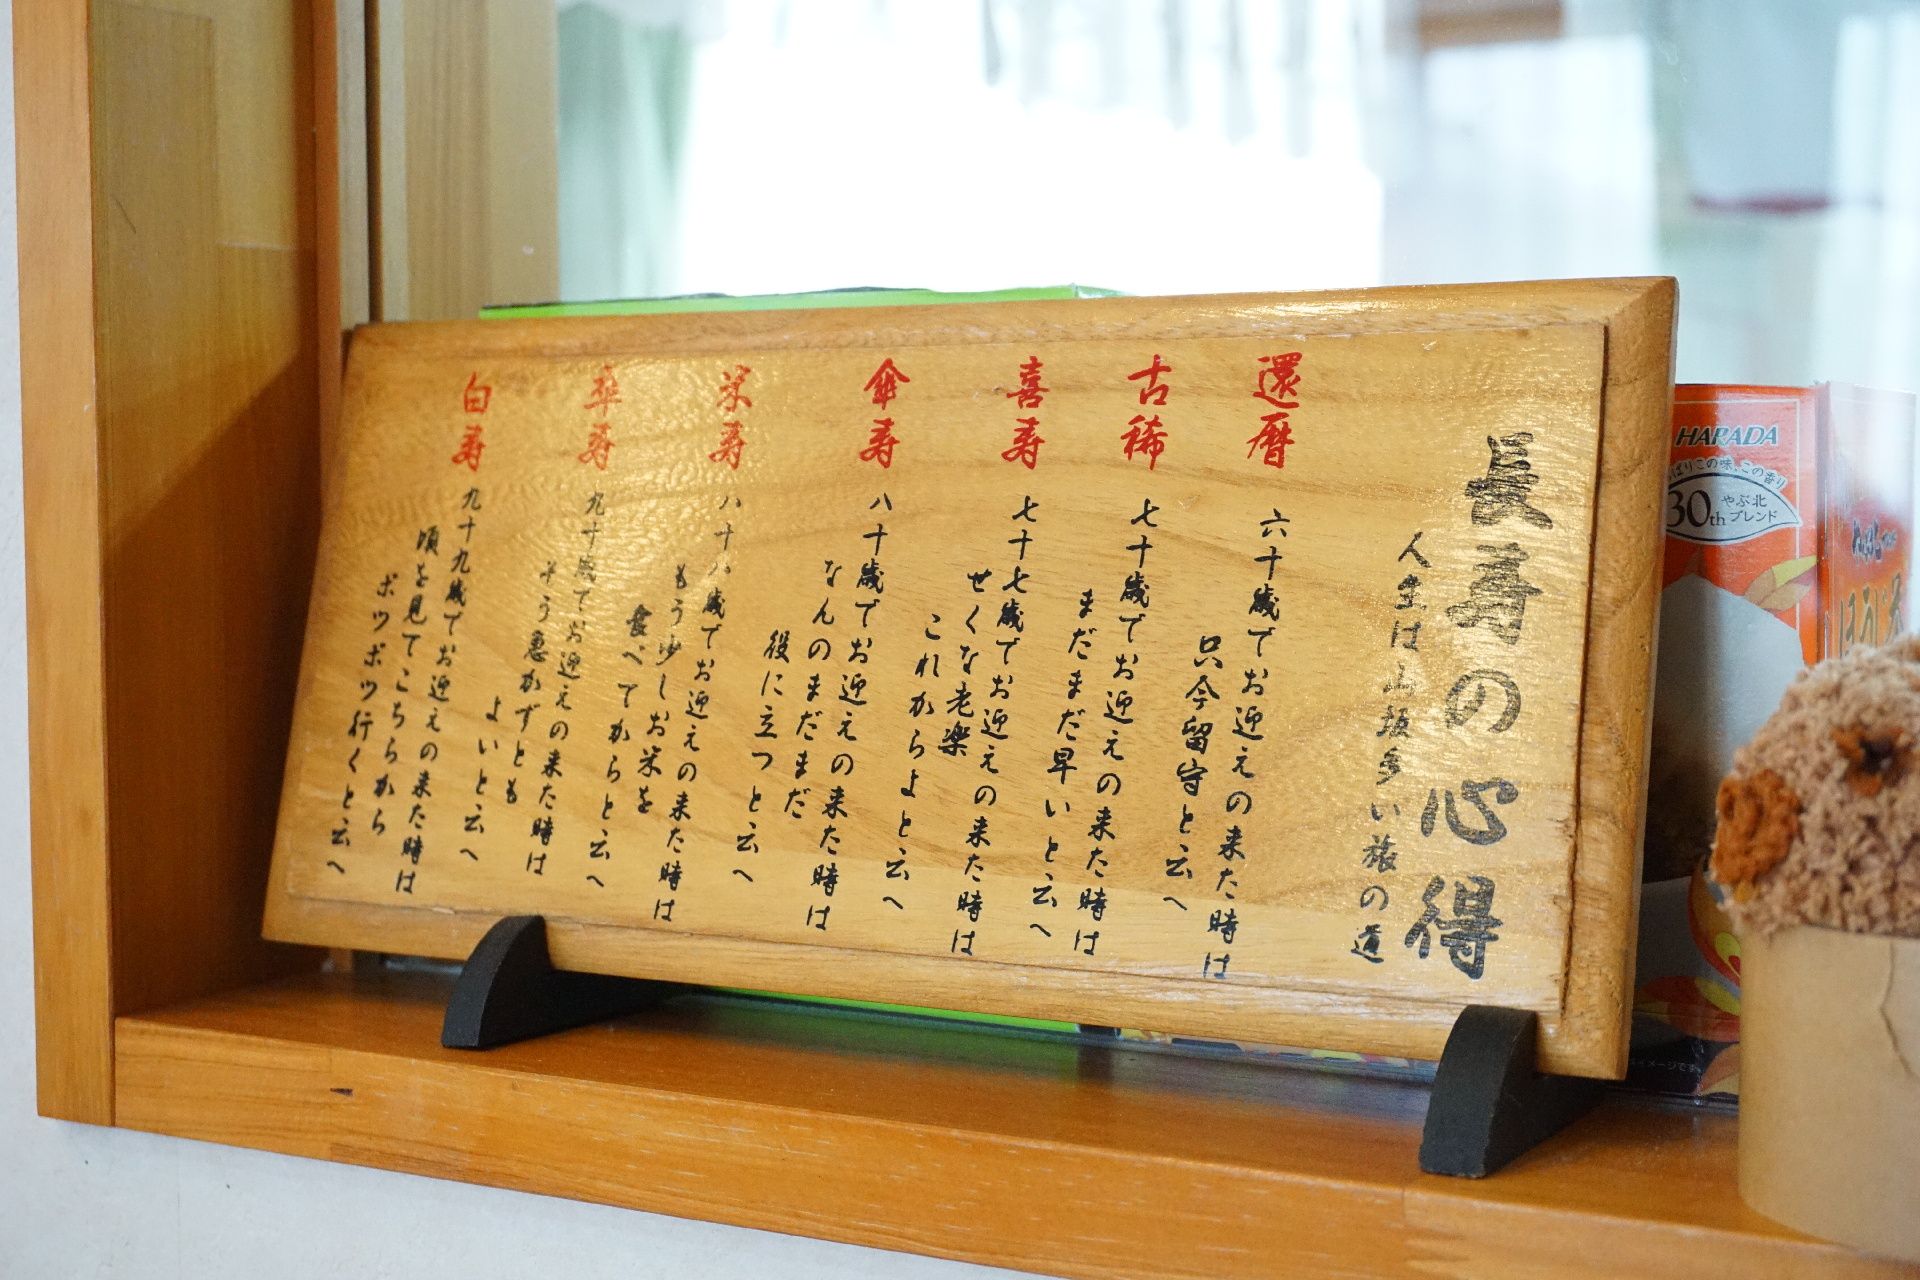 長寿の心得
人生は山坂多い旅の道
還暦
六十歳でお迎えの来た時は
只今留守と云へ
古稀
七十歳でお迎えの来た時は
まだまだ早いと云へ
喜寿
七十七歳でお迎えの来た時は
せくな老楽
これからよと云へ
傘寿
八十歳でお迎えの来た時は
なんのまだまだ
役に立つと云へ
米寿
八十八歳でお迎えの来た時は
もう少しお米を
食べてからと云へ
卒寿
九十歳でお迎えの来た時は
そう急かずとも
よいと云へ
白寿
九十九歳でお迎えの来た時は
頃を見てこちらから
ボツボツ行くと云へ
HARADA
ぱりこの味、この香り
30th
やぶ北
ブレンド
ほうじ茶
イメージです